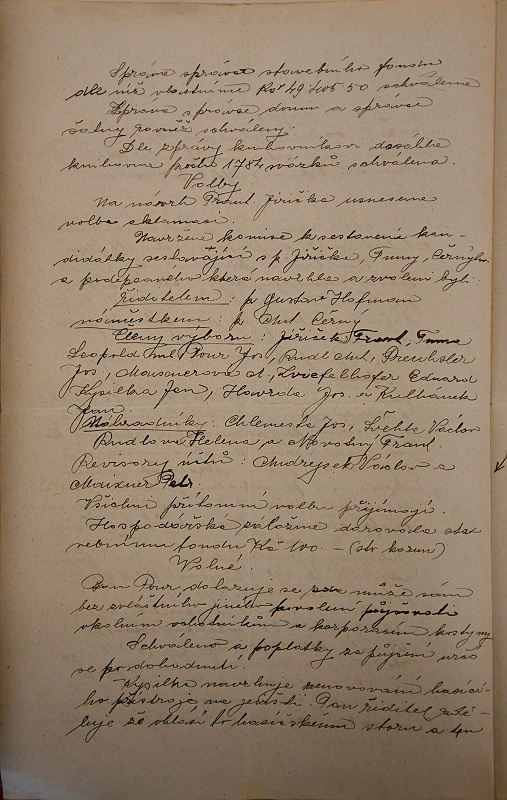 Zpráva správce stavebního fondu
dle níž vlastníme Kčs 49405 50 schválena
Zpráva správce domu a správce
šatny rovněž schváleny.
Dle zprávy knihovníkovi dosáhla
knihovna počtu 1784 svazků schválena.
Volby
Na návrh Frant. Jiřička usnesena
volba aklamací.
Navržena komise k sestavení kan-
didátky sestávající s p. Jiřičke, Tumy, Černého
a podepsaného která navrhla a zvoleni byli:
ředitelem: p Gustav Hofman
náměstkem: p Ant. Černý
Členy výboru: Jiřiček Frant, Tuma
Leopold ml, Pour Jos, Rudl Ant, Drechsler
Jos, Maixnerová st., Zwiefelhofer Eduard
Kysilka Jan, Havrda Jos. a Kulhánek
Jan.
Náhradníky: Chlemesta Jos, Švehla Václav
Rudlová Helena, a Novotný Frant.
Revisory účtů: Andrejsek Václav a
Maixner Petr.
Všichni přítomní volbu přijímají.
Hospodářská záložna darovala sta-
vebnímu fondu Kč 100.-
Volné.
Pan Pour dotazuje se zda může sám
bez zvláštního jiného povolení půjčovati
okolním ochotníkům a korporacím kostymy
Schváleno a poplatky za půjčení
se po dohodnutí.
Kysilka navrhuje
ho přístroje na jevišti. Pan ředitel
že ohlásí to hasičskému sboru a ten